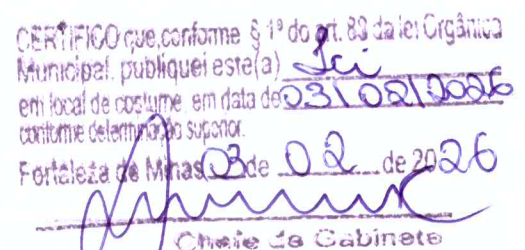 CERTIFICO que, conforme § 1º do art. 83 da lei Orgânica
Municipal, publiquei este(a) Lei
em local de costume, em data de 03/02/2026
conforme determinação superior.
Fortaleza de Minas 03 de 02 de 2026
Chefe de Gabinete